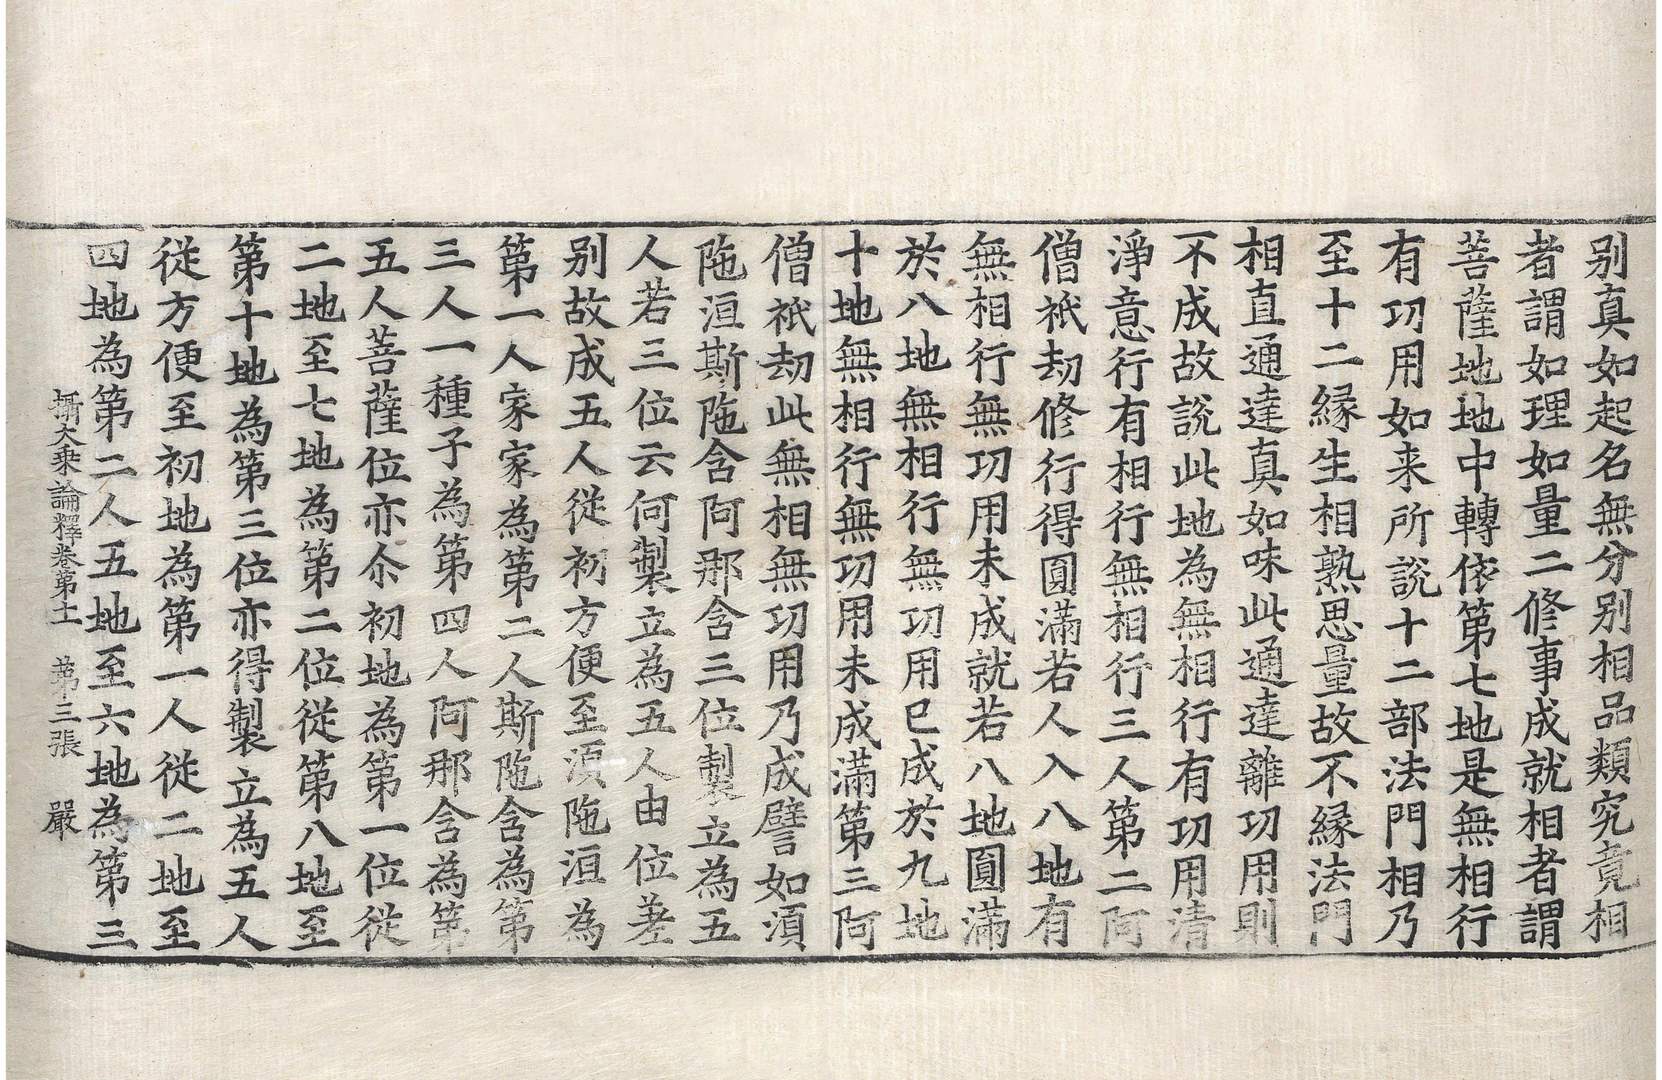 别真如起名無分别相品類究竟相
者謂如理如量二修事成就相者謂
菩薩地地中轉依第七地是無相行
有功用如来所說十二部法門相乃
至十二緣生相熟思量故不緣法門
相直通達真如味此通達離功用則
不成故說此地為無相行有功用清
淨意行有相行無相行三人第二阿
僧祇劫修行得圓滿若人入八地有
無相行無功用未成就若八地圓滿
於八地無相行無功用已成於九地
十地無相行無功用未成滿第三阿
僧祇劫此無相無功用乃成譬如須
陁洹斯陁含阿那含三位製立為五
人若三位云何製立為五人由位差
别故成五人從初方便至須陁洹為
第一人家家為第二人斯陁含為第
三人一種子為第四人阿那含為第
五人菩薩位亦尒初地為第一位從
二地至七地為第二位從第八地至
第十地為第三位亦得製立為五人
從方便至初地為第一人從二地至
四地為第二人五地至六地為第三
攝大乘論釋卷第十一 第三張 嚴